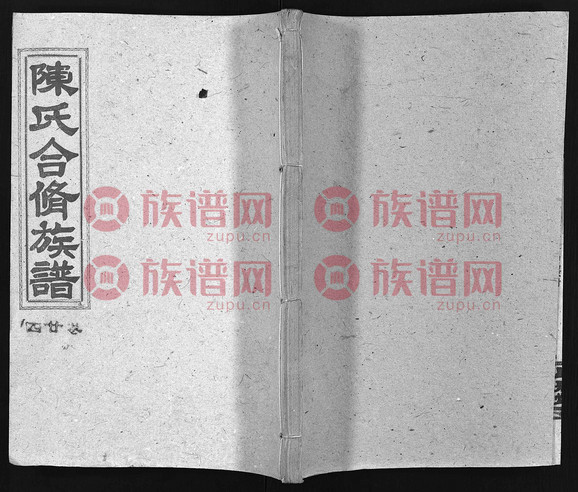 陳氏合脩族譜
卷廿四
族谱网 族谱网
zupu.cn zupu.cn
族谱网 族谱网
zupu.cn zupu.cn